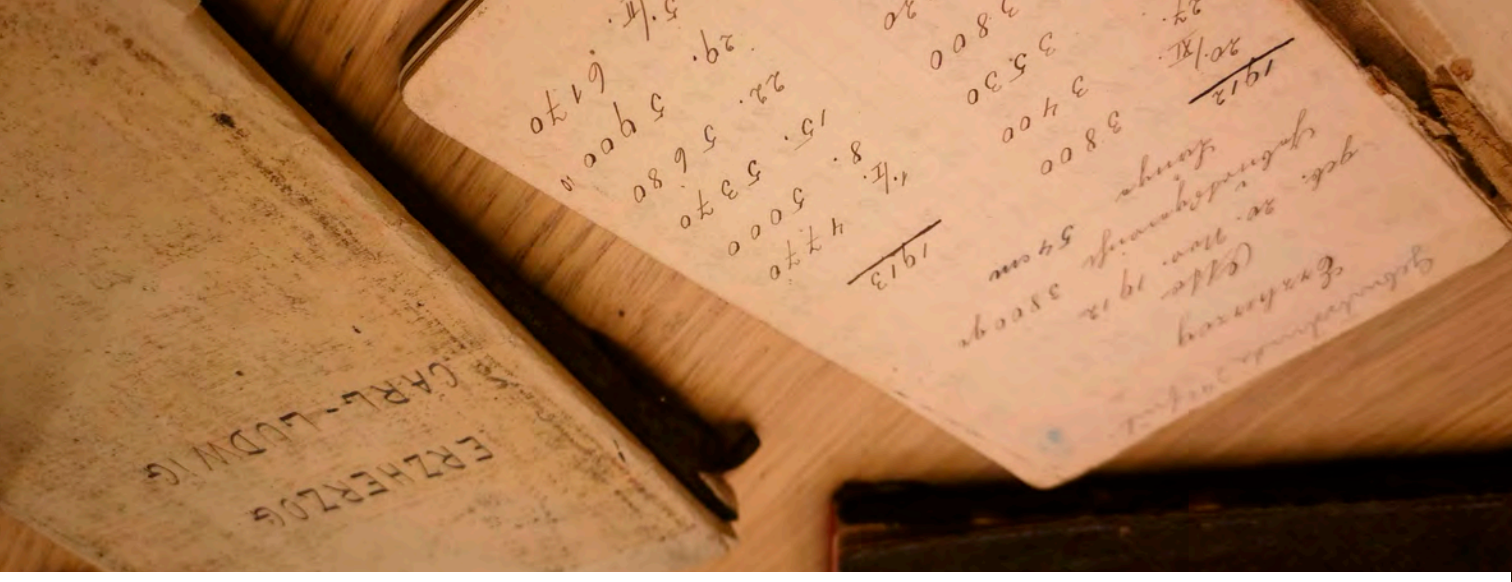 ERZHERZOG
CARL-LUDWIG
Erzherzog Otto
geb. 20. Nov. 1912
Geburtsgewicht 3800 gr
Länge 54 cm
1912
20./XI. 3800
27. 3400
3530
3800
1913
1./I. 4770
8. 5000
15. 5370
22. 5680
29. 5900
5./II. 6170